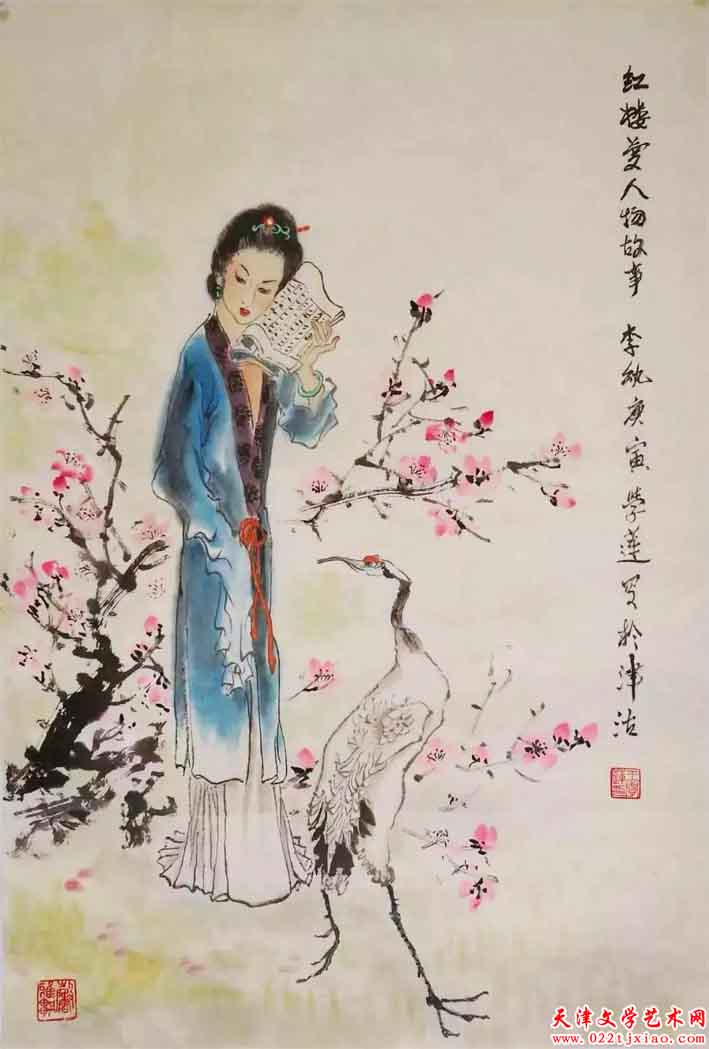 红楼梦人物故事 李纨庚寅学莲写於津沽
天津文学艺术网
www.022tjxiao.com